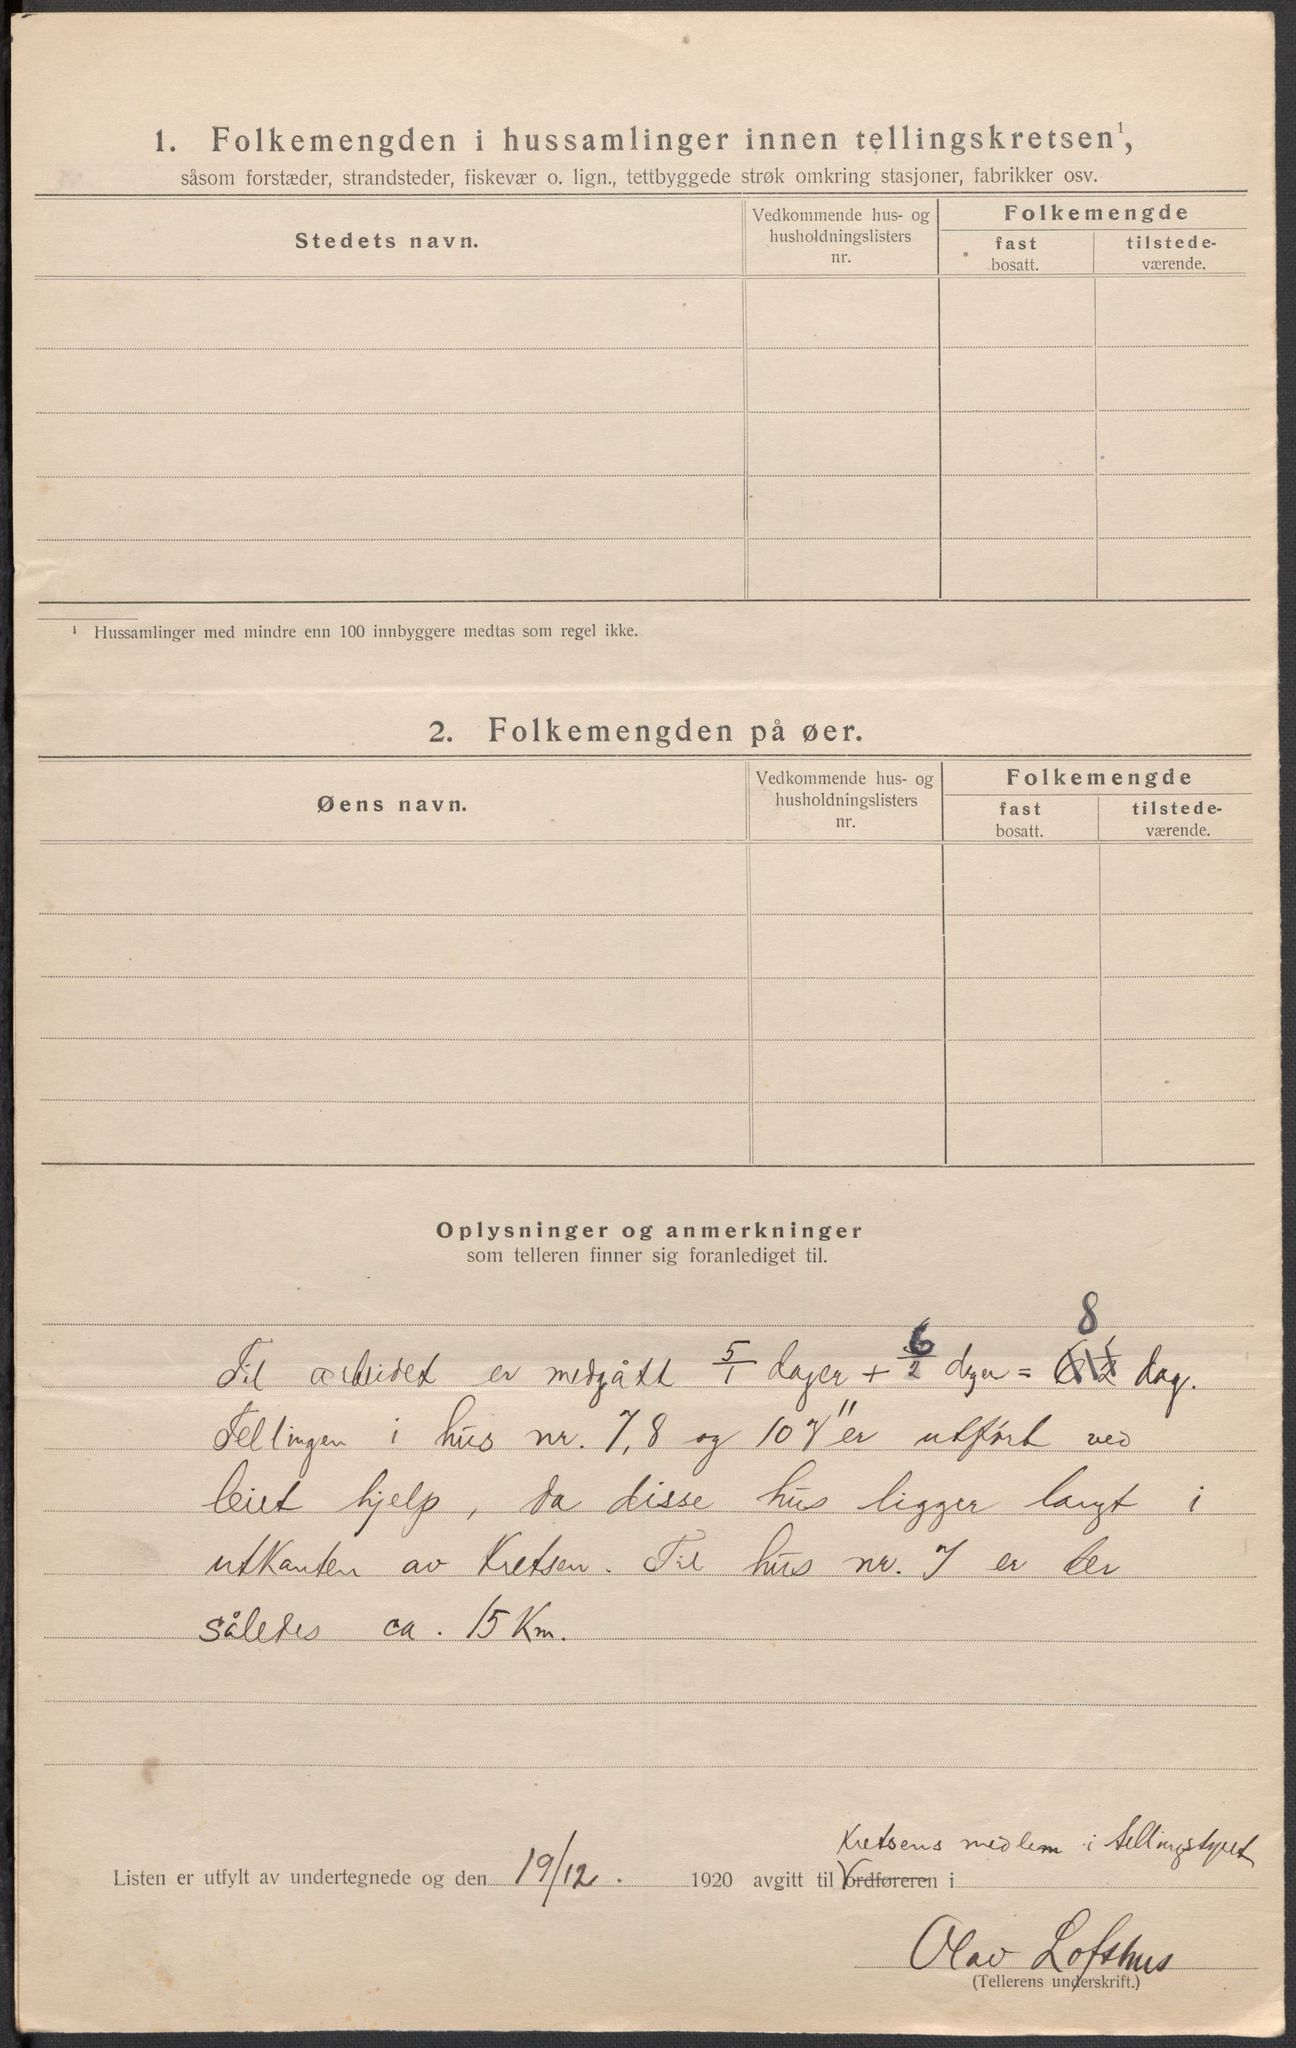 1. Folkemengden i hussamlinger innen tellingskretsen¹,
såsom forstæder, strandsteder, fiskevær o. lign., tettbyggede strøk omkring stasjoner, fabrikker osv.
Stedets navn.
Vedkommende hus- og
husholdningslisters
nr.
Folkemengde
fast
bosatt.
tilstede-
værende.
¹ Hussamlinger med mindre enn 100 innbyggere medtas som regel ikke.
2. Folkemengden på øer.
Øens navn.
Vedkommende hus- og
husholdningslisters
nr.
Folkemengde
fast
bosatt.
tilstede-
værende.
Oplysninger og anmerkninger
som telleren finner sig foranlediget til.
8
Til arbeidet er medgått 5/1 dager + 6/2 dger = dag.
Tellingen i hus nr. 7, 8 og 10 er utført ved
leiet hjelp, da disse hus ligger langt i
utkanten av Kretsen. Til hus nr. 7 er der
således ca. 15 Km.
Kretsens medlem i tellingstyret
Listen er utfylt av undertegnede og den 19/12. 1920 avgitt til Vordføreren i
Olav Lofthus
(Tellerens underskrift.)